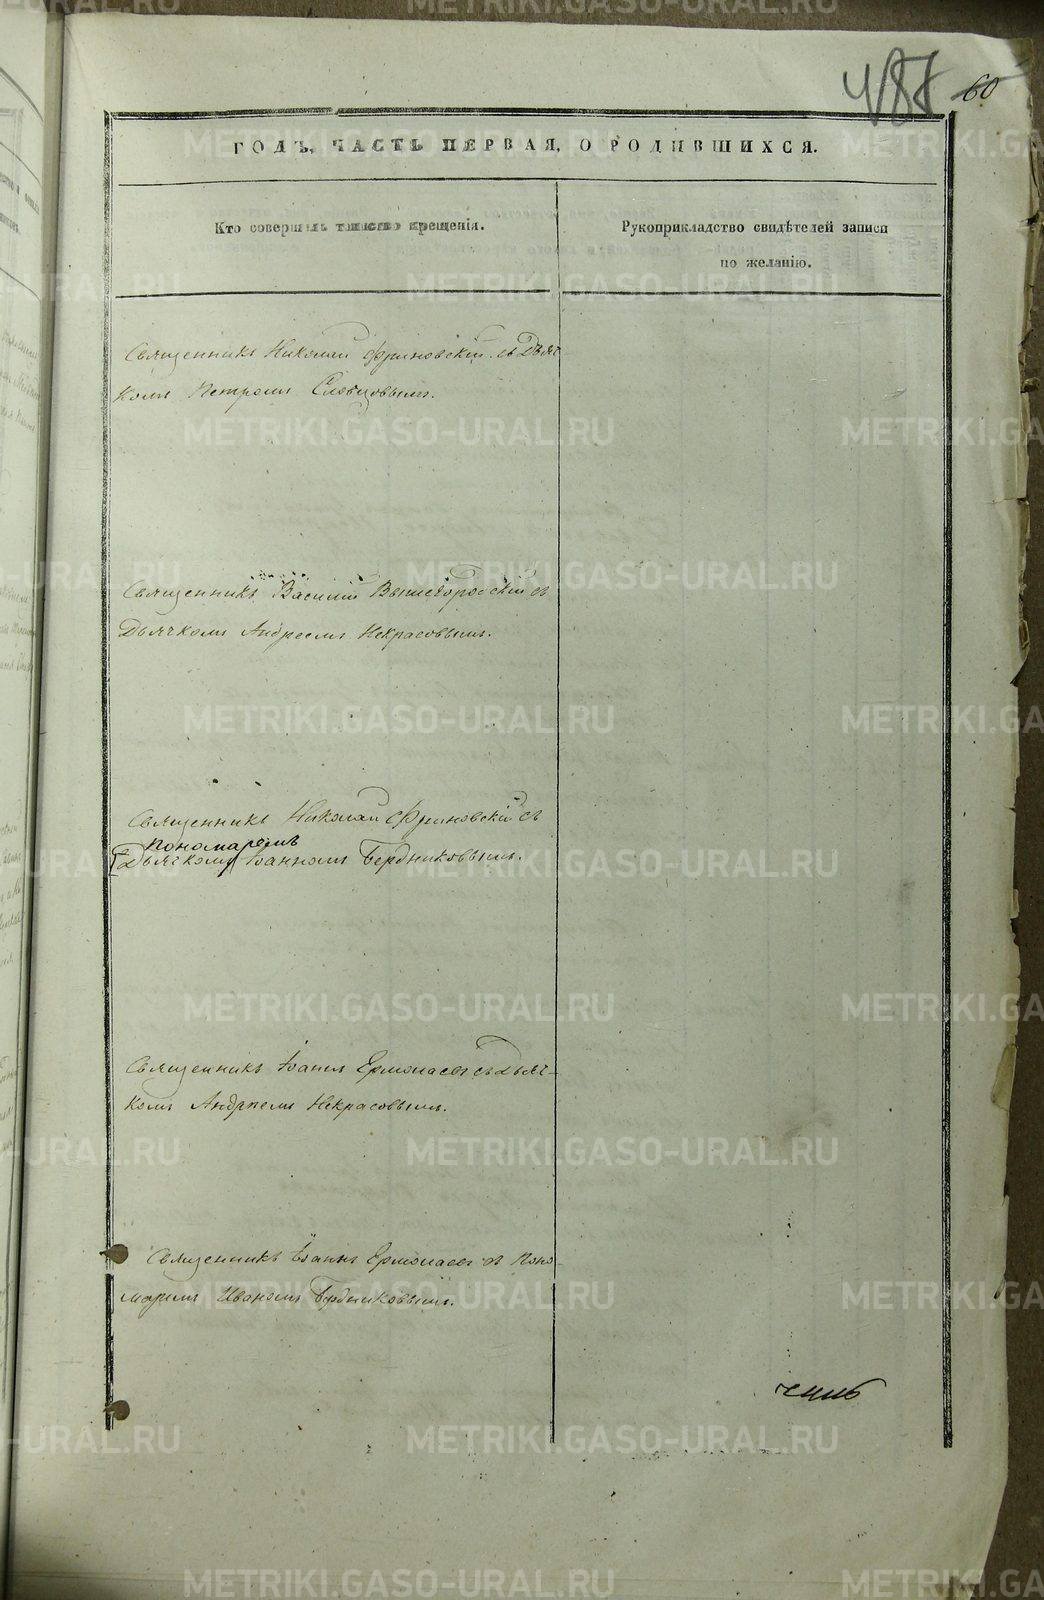 60
ГОДЪ, ЧАСТЬ ПЕРВАЯ, О РОДИВШИХСЯ.
Кто совершилъ таинство крещенія.
Рукоприкладство свидѣтелей записи
по желанію.
Священникъ Николай Фриновскій съ Дьяч-
комъ Петромъ Словцовымъ.
Священникъ Василій Вышегородскій съ
Дьячкомъ Андреемъ Некрасовымъ.
Священникъ Николай Фриновскій съ
пономаремъ
(Дьячкомъ) Іоанномъ Бердниковымъ.
Священникъ Іоаннъ Ермолаевъ съ Дьяч-
комъ Андреемъ Некрасовымъ.
Священникъ Іоаннъ Ермолаевъ съ Поно-
маремъ Иваномъ Бердниковымъ.
METRIKI.GASO-URAL.RU